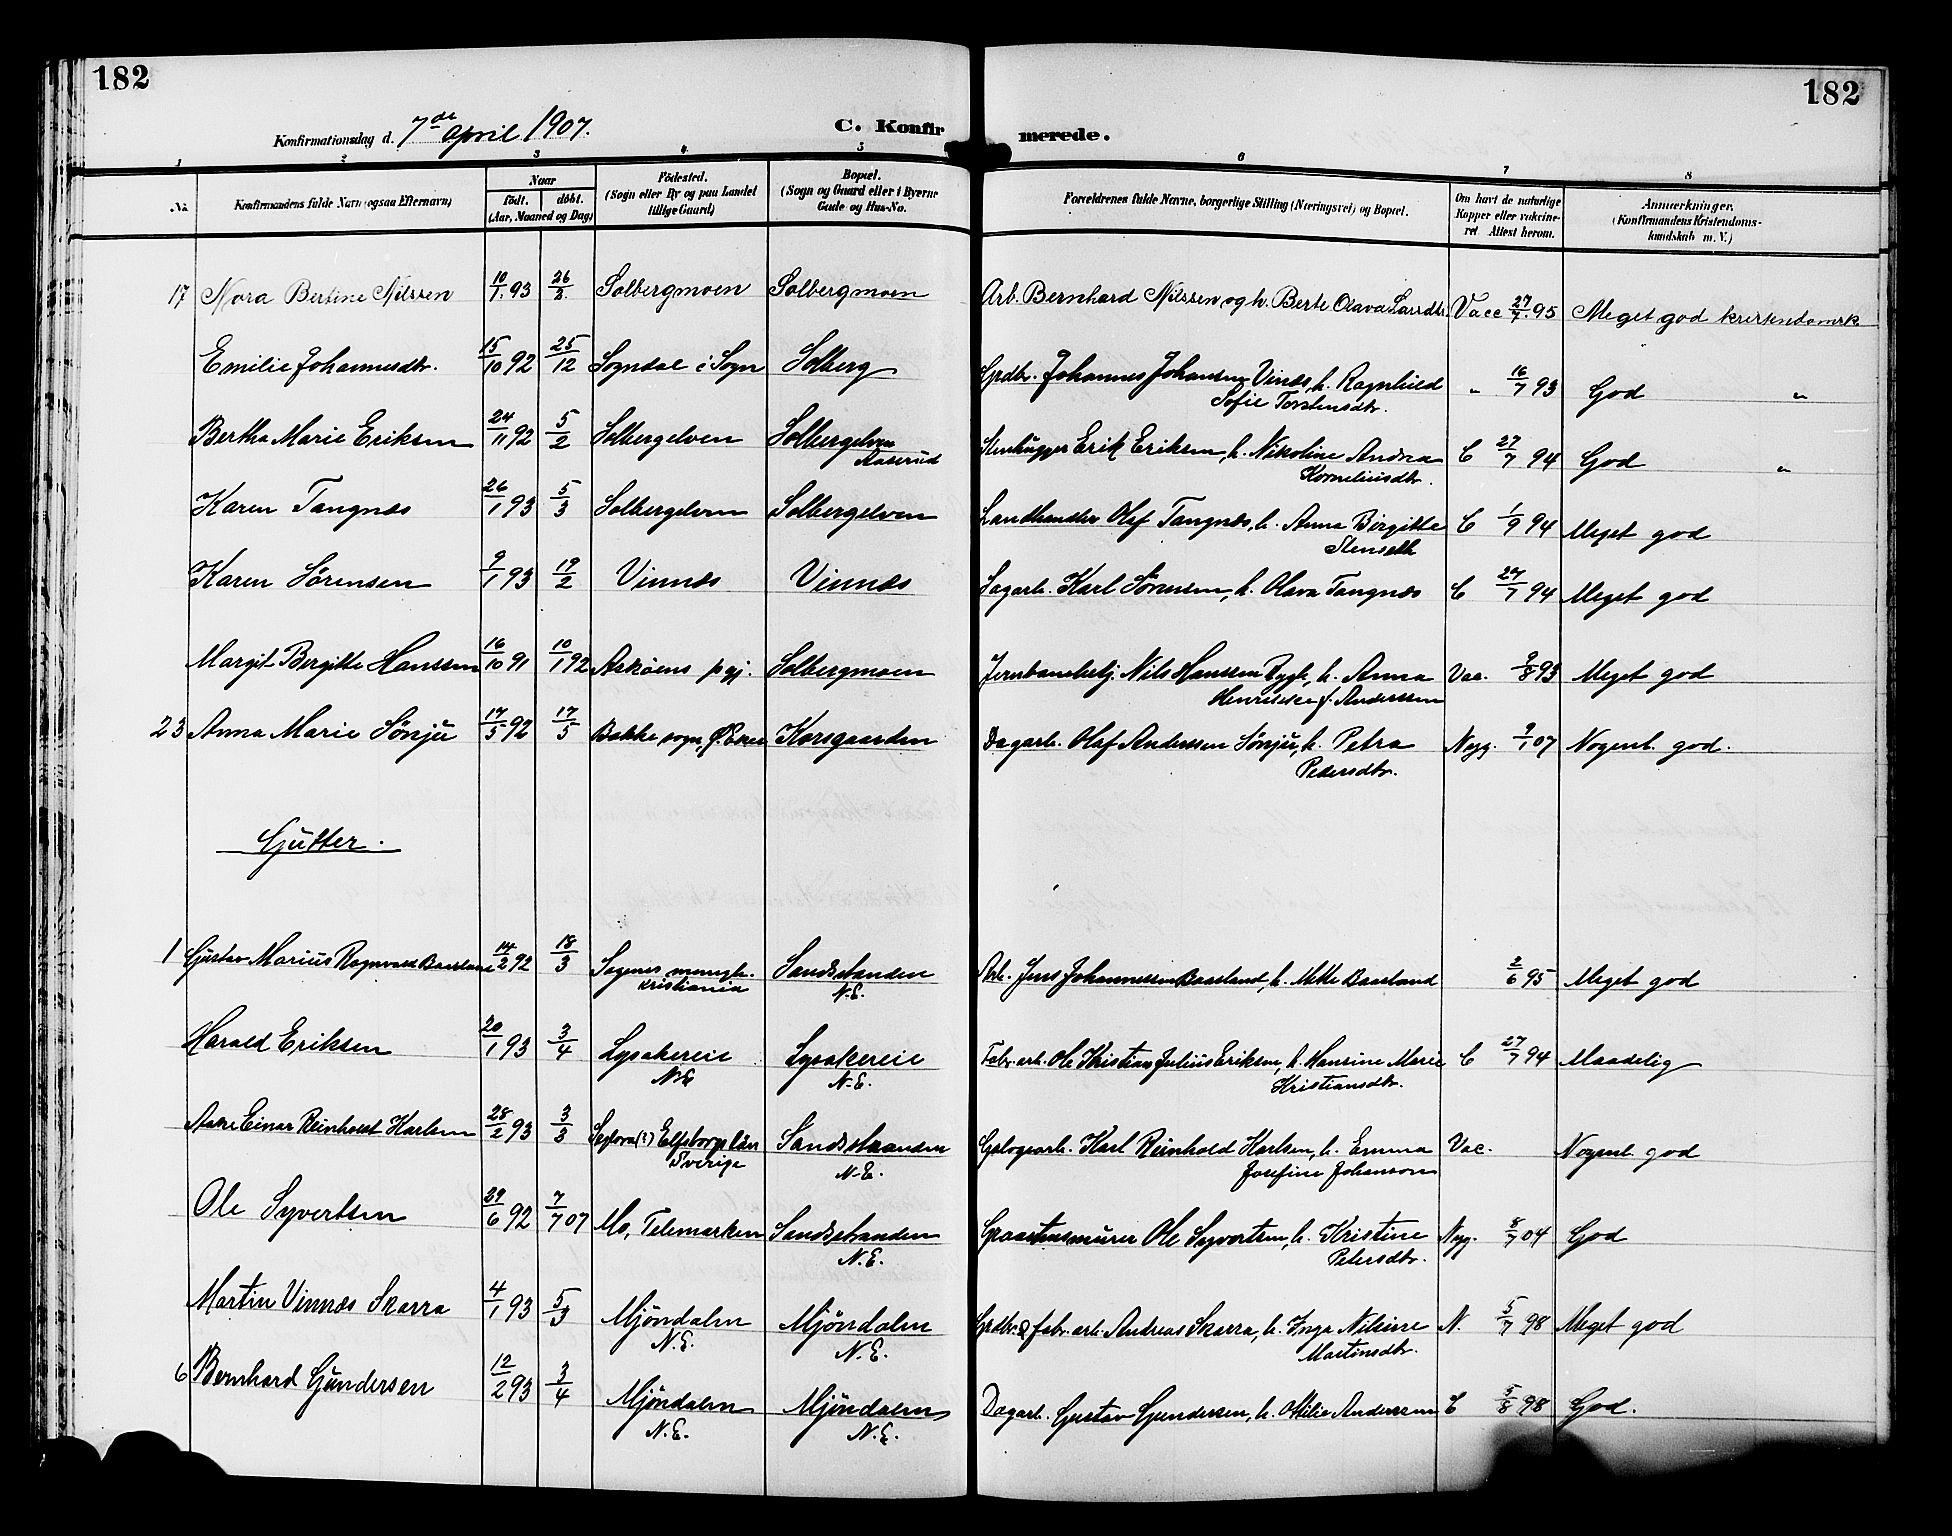 182
182
Konfirmationsdag d. 7de April 1907.
C. Konfirmerede.
1 2 3 4 5 6 7 8
No.
Konfirmandens fulde Navn (ogsaa Efternavn)
Naar
født. døbt.
(Aar, Maaned og Dag)
Fødested.
(Sogn eller By og paa Landet
tillige Gaard)
Bopæl.
(Sogn og Gaard eller i Byerne
Gade og Hus-No.
Forældrenes fulde Navne, borgerlige Stilling (Næringsvei) og Bopæl.
Om havt de naturlige
Kopper eller vakcine-
ret Attest herom.
Anmærkninger.
(Konfirmandens Kristendoms-
kundskab m. V.)
17 Nora Bertine Nilssen 10/1 93 26/2 Solbergmoen Solbergmoen Arb. Bernhard Nilssen og h. Berte Olava Larsdtr. Vacc 27/7 95 Meget god kristendomsk.
Emilie Johannesdtr. 15/10 92 25/12 Sogndal i Sogn Solberg Grdbr. Johannes Johansen Vinæs, h. Ragnhild „ 16/7 93 God „
Sofie Torstensdtr.
Bertha Marie Eriksen 24/11 92 5/2 Solbergelven Solbergelven Stenhugger Erik Eriksen, h. Nikoline Andrea C 27/7 94 God „
Aaserud Kornelinsdtr.
Karen Tangnæs 26/1 93 5/3 Solbergelven Solbergelven Landhandler Olaf Tangnæs, h. Anna Birgitte C 1/9 94 Meget god
Stenseth
Karen Sørensen 9/1 93 19/2 Vinnæs Vinnæs Sagarb. Karl Sørensen, h. Olava Tangnæs C 27/7 94 Meget god
Margit Bergitte Hanssen 16/10 91 10/1 92 Askøens pgj. Solbergmoen Jernbanebetj. Nils Hanssen Rygh, h. Anna Vac. 9/8 93 Meget god
Henriette f. Anderssen
23 Anna Marie Sønju 17/5 92 17/5 Bakke sogn, Ø. Eker Korsgaarden Dagarb. Olaf Anderssen Sønju, h. Petra Nyg. 9/1 07 Nogenl. god.
Pedersdtr.
Gutter.
1 Gustav Marius Ragnvald Baasland 14/2 92 18/3 Sagenes menigh. Sandsstranden Arb. Jens Johannessen Baasland, h. Mette Baasland 2/6 95 Meget god
Kristiania N.E.
Harald Eriksen 20/1 93 3/4 Lysakereie Lysakereie Fabr.arb. Ole Kristian Julius Eriksen, h. Hansine Marie C 27/7 94 Maadelig
N.E. N.E. Kristiansdtr.
Einar Reinholdt Karlsen 28/2 93 3/3 (?) Elfsborgs län Sandsstranden Karl Reinhold Karlsen, h. Emma Vac. Nogenl. god
Sverige N.E. Josefine Johanson
Ole Syvertsen 29/6 92 7/7 07 Mo, Telemarken Sandsstranden Graastensmurer Ole Syvertsen, h. Kristine Nyg. 8/7 04 God
N.E. Petersdtr.
Martin Vinnæs Skarra 4/1 93 5/3 Mjøndalen Mjøndalen Grdbr. & fabr.arb. Andreas Skarra, h. Inga Nilsine N. 5/7 98 Meget god
N.E. N.E. Martinsdtr.
6 Bernhard Gundersen 12/2 93 3/4 Mjøndalen Mjøndalen Dagarb. Gustav Gundersen, h. Otilie Anderssen C 5/8 98 God.
N.E. N.E.